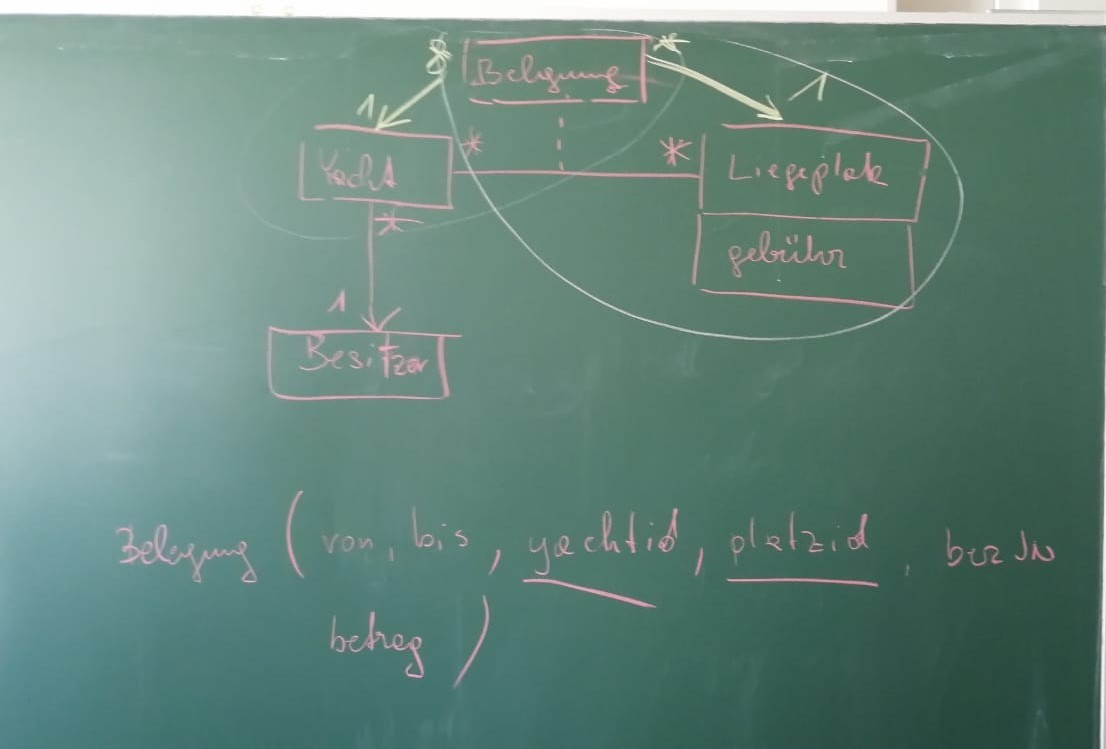 * Belegung *
1 1
Yacht * * Liegeplatz
* gebühr
1
Besitzer
Belegung ( von, bis, yachtid, platzid,
betrag )